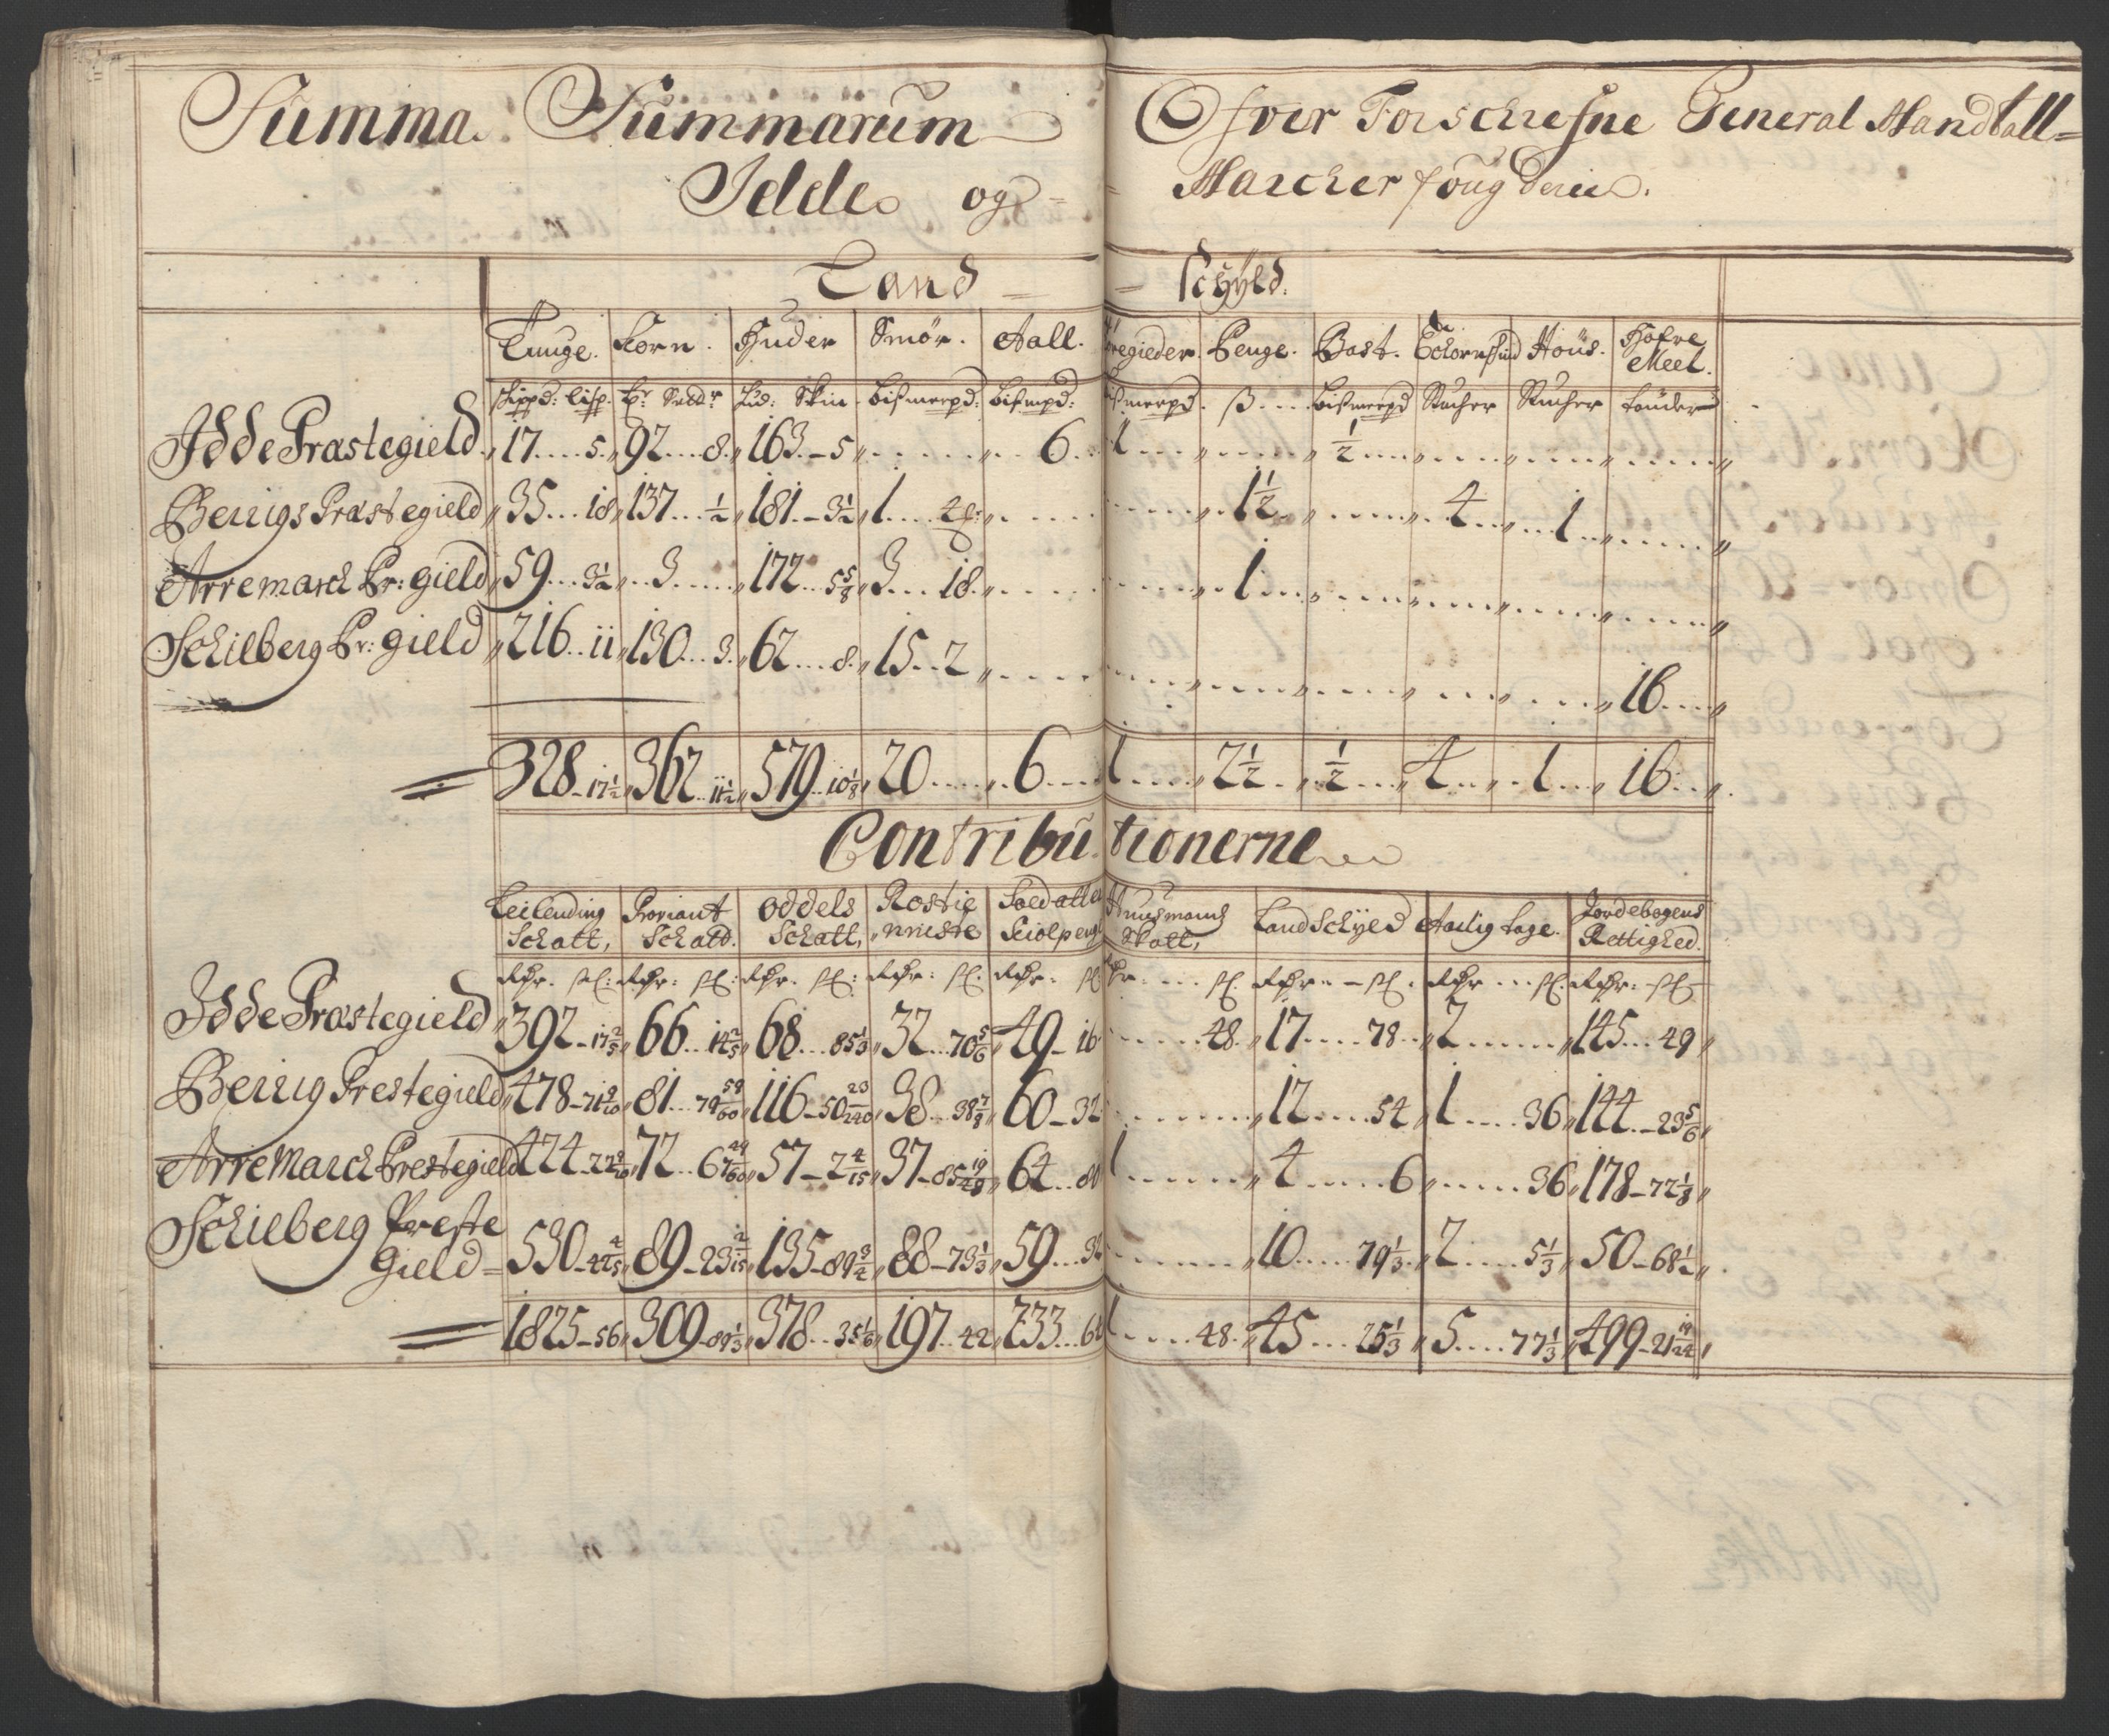 Summa Summarum Ofver Forschrefne General Mandtall
Idde og Marcher fougderie.
Land Schyld.
Tunge. Korn. Huder Smør. Aall. Penge. Bast. Høns. Hafre Meel.
Schippd: lisp. Hud: Skin Bismerpd: Bismpd: ß Bismerpd Stucher Stucher tønder
Idde Præstegield 17 5 92 8 163 5 6 1 ½
Bergs Præstegield 35 18 137 ½ 181 3½ 1 1½ 4 1
Arremarch Pr: gield 59 3½ 3 172 5⅝ 3 18 1
Schilberg Pr: gield 216 11 130 3 62 8 15 2 16
328 17½ 362 11½ 579 10⅛ 20 6 1 2½ ½ 4 1 16
Contributionerne
Leilending Schatt, Proviant Schatt. Oddels Schatt, Rostienneste Soldatter Kiolpeng Huusmands Skatt, Land Schyld Aarlig tage. Jordebogens Rettighed.
Rdr. sl: Rdr: sl: Rdr. sl: Rdr: sl: Rdr. sl: sl. Rdr sl. Rdr sl. Rdr: sl.
Idde Præstegield 392 17⅖ 66 14⅖ 68 85⅓ 32 70⅚ 49 16 48 17 78 2 145 49
Berrig Prestegield 478 71 9/10 81 79 59/60 116 50 23/240 38 38⅞ 60 32 12 54 1 36 144 23⅚
Arremarch Prestegield 424 22 9/10 72 67 49/60 57 2 4/15 37 64 80 1 4 6 36 178 72⅛
Schilberg Preste Gield 530 89 23 2/15 135 89¾ 88 73⅓ 59 32 10 79⅓ 2 5⅓ 50 68½
1825 56 309 89⅓ 378 35⅙ 197 42 233 64 1 48 45 25⅓ 5 77⅓ 499 21 19/24